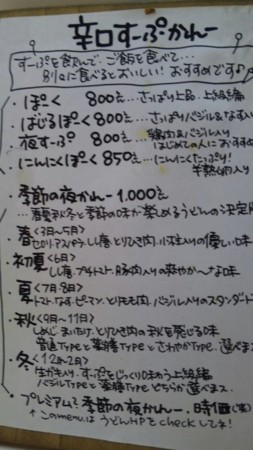 辛口すーぷかれー
すーぷを飲んで、ご飯を食べて...
別々に食べるとおいしい! おすすめです♪
・ぽーく 800円...さっぱり上品、上級編
・ばじるぽーく 800円...さっぱりバジル&なす入り
・夜すーぷ 800円...鶏肉&バジル入り
はじめての人におすすめ
・にんにくぽーく 850円...にんにくたっぷり!
半熟卵入り
・季節の夜かれー 1,000円...
...春夏秋冬と季節の味が楽しめるうどんの決定版
春〈3月~5月〉
セロリ、アスパラ、しし唐、とりひき肉、小柱入りの優しい味
初夏〈6月〉
しし唐、プチトマト、豚肉入りの爽やか~な味
夏〈7月・8月〉
トマト、なす、ピーマン、とりもも肉、バジル入りのスタンダード
秋〈9月~11月〉
しめじ、まいたけ、とりひき肉の秋を感じる味
普通Typeと薬膳TypeとさわやかType、選べます
冬〈12月・2月〉
生ガキ入り、すーぷをじっくり味わう上級編
バジルTypeと薬膳Typeどちらか選べます
・プレミアム?季節の夜かれー、時価(笑)
↑このmenuは うどんHPでcheckしてネ!